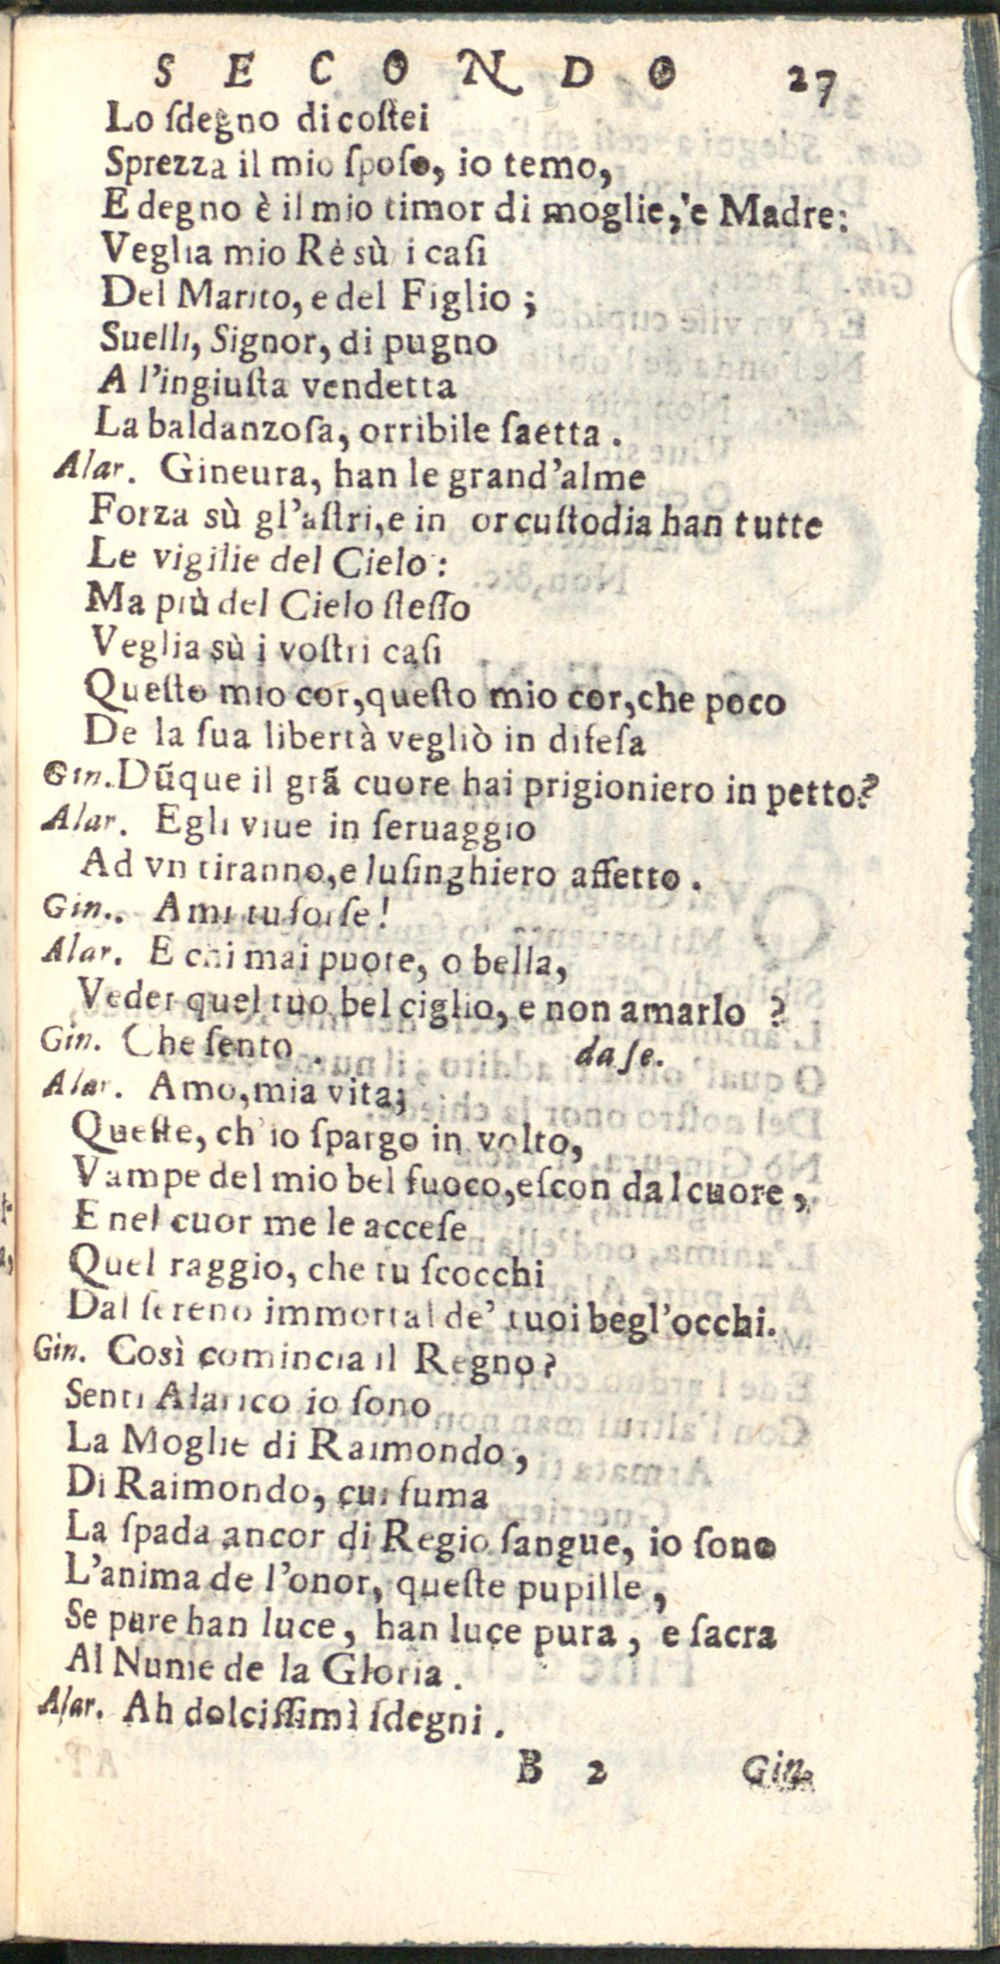 SECONDO 27
Lo ſdegno di coſtei
Sprezza il mio ſpoſo, io temo,
E degno è il mio timor di moglie, e Madre:
Veglia mio Rè sù i caſi
Del Marito, e del Figlio ;
Suelli, Signor, di pugno
A l'ingiuſta vendetta
La baldanzoſa, orribile ſaetta .
Alar. Gineura, han le grand'alme
Forza sù gl'aſtri, e in or cuſtodia han tutte
Le vigilie del Cielo :
Ma più del Cielo ſteſſo
Veglia sù i voſtri caſi
Queſto mio cor, queſto mio cor, che poco
De la ſua libertà vegliò in difeſa
Gin. Dũque il grã cuore hai prigioniero in petto?
Alar. Egli viue in ſeruaggio
Ad vn tiranno, e luſinghiero affetto .
Gin.. Ami tu forſe!
Alar. E chi mai puote, o bella,
Veder quel tuo bel ciglio, e non amarlo ?
Gin. Che ſento . da ſe.
Alar. Amo, mia vita;
Queſte, ch'io ſpargo in volto,
Vampe del mio bel fuoco, eſcon dal cuore ,
E nel cuor me le acceſe
Quel raggio, che tu ſcocchi
Dal ſereno immortal de' tuoi begl'occhi.
Gin. Così comincia il Regno?
Senti Alarico io ſono
La Moglie di Raimondo ,
Di Raimondo, cui fuma
La ſpada ancor di Regio ſangue, io ſono
L'anima de l'onor, queſte pupille ,
Se pure han luce, han luce pura , e ſacra
Al Nume de la Gloria .
Alar. Ah dolciſſimì ſdegni .
B 2 Gin.